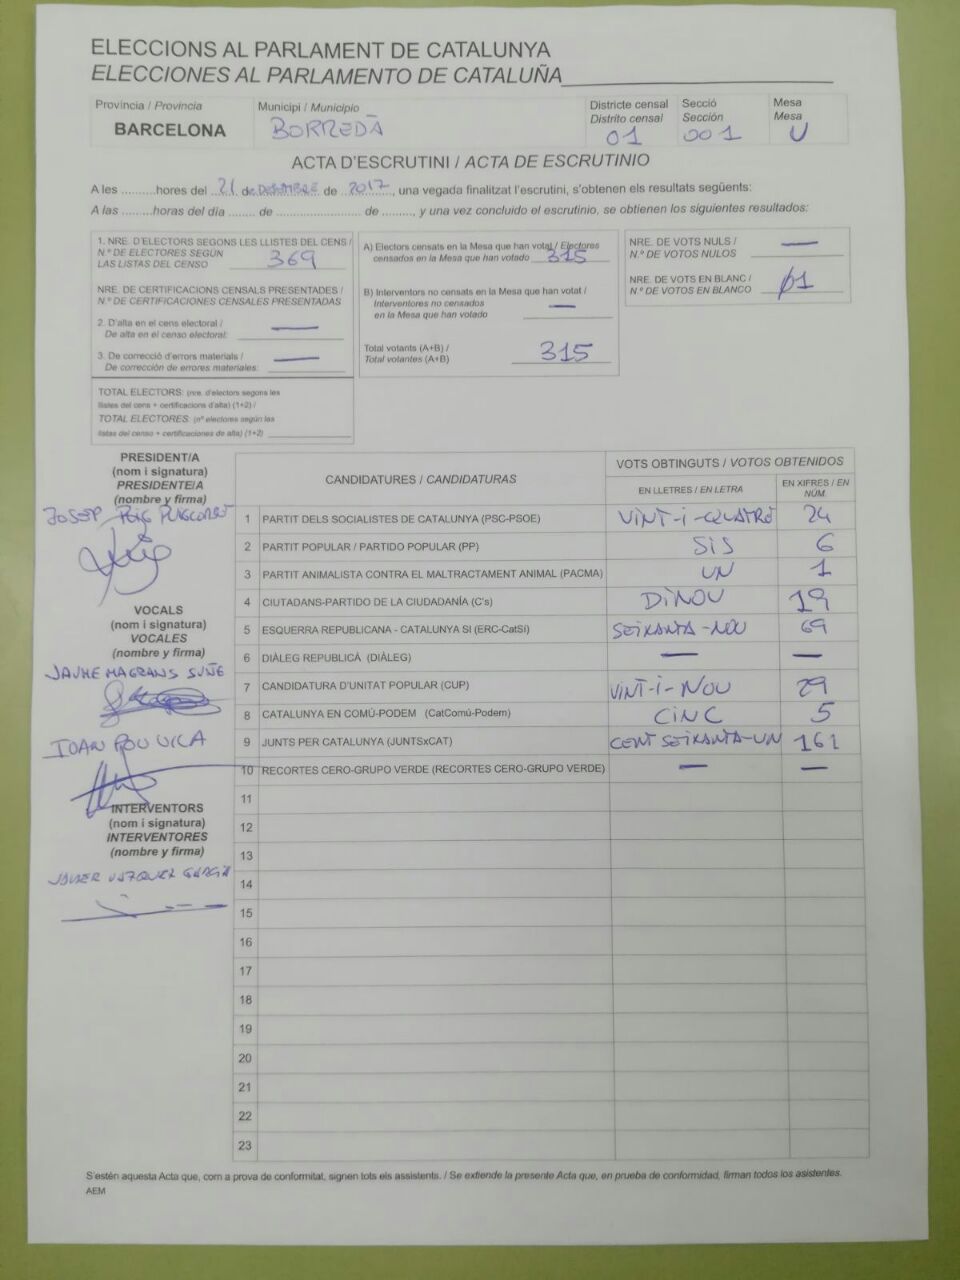 ELECCIONS AL PARLAMENT DE CATALUNYA
ELECCIONES AL PARLAMENTO DE CATALUÑA
Província / Provincia
BARCELONA
Municipi / Municipio
BORREDÀ
Districte censal
Distrito censal
01
Secció
Sección
001
Mesa
Mesa
U
ACTA D'ESCRUTINI / ACTA DE ESCRUTINIO
A les ..........hores del 21 de DESEMBRE de 2017, una vegada finalitzat l'escrutini, s'obtenen els resultats següents:
A las ..........horas del día ........ de ......................... de ........., y una vez concluido el escrutinio, se obtienen los siguientes resultados:
1. NRE. D'ELECTORS SEGONS LES LLISTES DEL CENS /
N.º DE ELECTORES SEGÚN
LAS LISTAS DEL CENSO 369
NRE. DE CERTIFICACIONS CENSALS PRESENTADES /
N.º DE CERTIFICACIONES CENSALES PRESENTADAS
2. D'alta en el cens electoral / —
De alta en el censo electoral:
3. De correcció d'errors materials / —
De corrección de errores materiales:
TOTAL ELECTORS: (nre. d'electors segons les
llistes del cens + certificacions d'alta) (1+2) /
TOTAL ELECTORES: (nº electores según las
listas del censo + certificaciones de alta) (1+2)
A) Electors censats en la Mesa que han votat / Electores
censados en la Mesa que han votado 315
B) Interventors no censats en la Mesa que han votat /
Interventores no censados —
en la Mesa que han votado
Total votants (A+B) /
Total votantes (A+B) 315
NRE. DE VOTS NULS / —
N.º DE VOTOS NULOS
NRE. DE VOTS EN BLANC /
N.º DE VOTOS EN BLANCO 01
PRESIDENT/A
(nom i signatura)
PRESIDENTE/A
(nombre y firma)
JOSEP PUIG
VOCALS
(nom i signatura)
VOCALES
(nombre y firma)
JAUME MAGRANS SUÑE
JOAN ROU VILA
INTERVENTORS
(nom i signatura)
INTERVENTORES
(nombre y firma)
JAVIER VAZQUEZ GARCIA
CANDIDATURES / CANDIDATURAS
VOTS OBTINGUTS / VOTOS OBTENIDOS
EN LLETRES / EN LETRA
EN XIFRES / EN
NÚM.
1 PARTIT DELS SOCIALISTES DE CATALUNYA (PSC-PSOE) VINT-I-QUATRE 24
2 PARTIT POPULAR / PARTIDO POPULAR (PP) SIS 6
3 PARTIT ANIMALISTA CONTRA EL MALTRACTAMENT ANIMAL (PACMA) UN 1
4 CIUTADANS-PARTIDO DE LA CIUDADANÍA (C's) DINOU 19
5 ESQUERRA REPUBLICANA - CATALUNYA SÍ (ERC-CatSí) SEIXANTA-NOU 69
6 DIÀLEG REPUBLICÀ (DIÀLEG) — —
7 CANDIDATURA D'UNITAT POPULAR (CUP) VINT-I-NOU 29
8 CATALUNYA EN COMÚ-PODEM (CatComú-Podem) CINC 5
9 JUNTS PER CATALUNYA (JUNTSxCAT) CENT SEIXANTA-UN 161
10 RECORTES CERO-GRUPO VERDE (RECORTES CERO-GRUPO VERDE) — —
11
12
13
14
15
16
17
18
19
20
21
22
23
S'estén aquesta Acta que, com a prova de conformitat, signen tots els assistents. / Se extiende la presente Acta que, en prueba de conformidad, firman todos los asistentes.
AEM